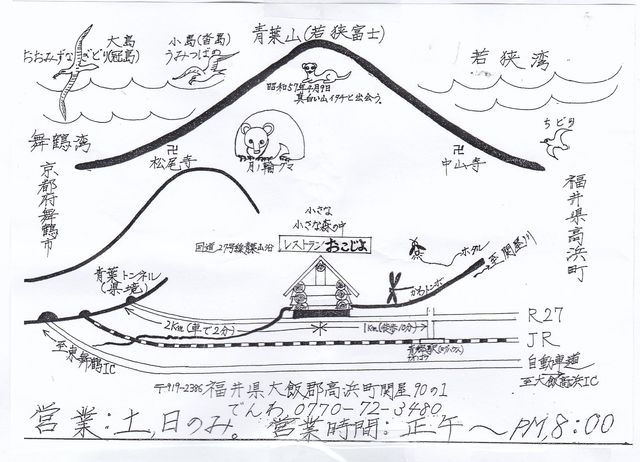 青葉山(若狭富士)
大島
おおみずなぎどり(冠島)
小島(沓島)
うみつばめ
若狭湾
昭和57年4月9日
真白い山イタチと出会う。
ちどり
舞鶴湾
松尾寺
月ノ輪グマ
中山寺
京都府舞鶴市
福井県高浜町
小さな
小さな森の中
国道27号線青葉山沿
レストラン おこじょ
ホタル
至関屋川
青葉トンネル
(県境)
かわトンボ
2Km(車で2分)
1Km(徒歩10分)
R27
JR
自動車道
至大飯高浜IC
至東舞鶴IC
〒919-2386 福井県大飯郡高浜町関屋90の1
でんわ.0770-72-3480
営業:土,日のみ。 営業時間:正午〜PM,8:00